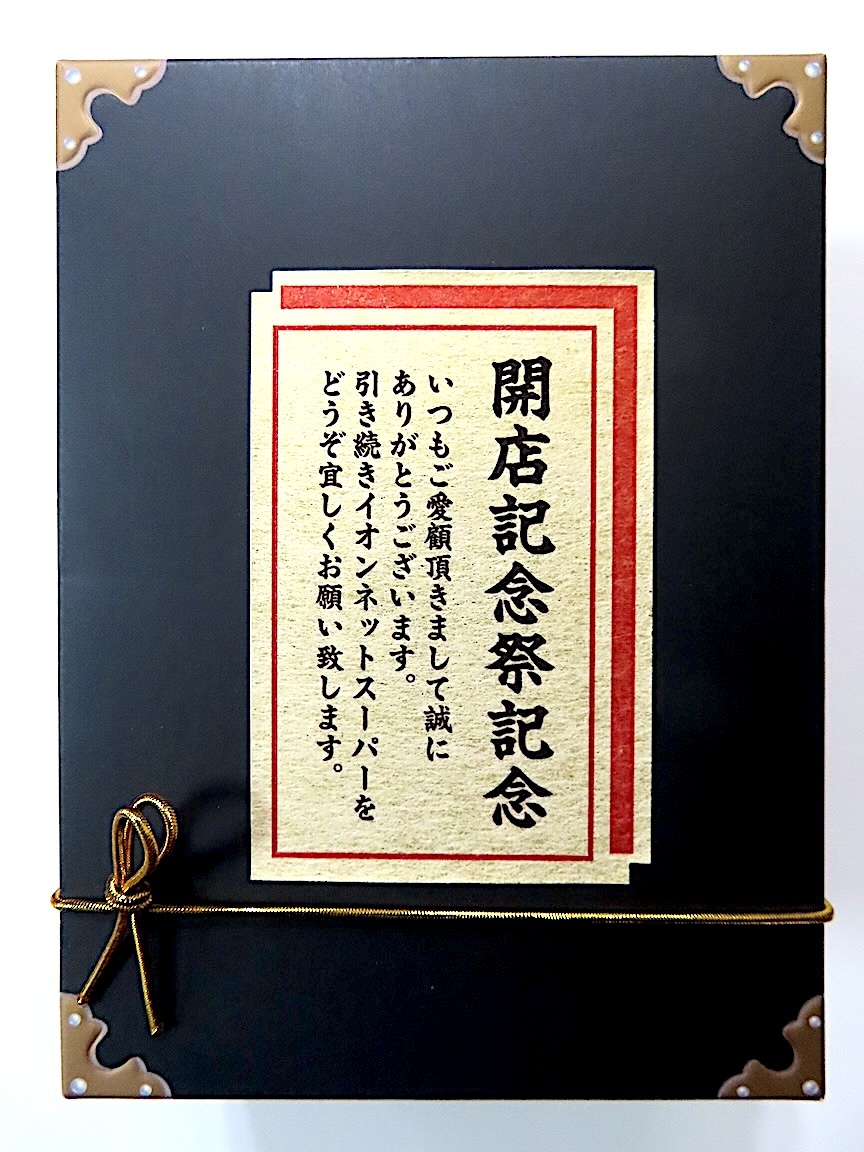 開店記念祭記念
いつもご愛顧頂きまして誠に
ありがとうございます。
引き続きイオンネットスーパーを
どうぞ宜しくお願い致します。